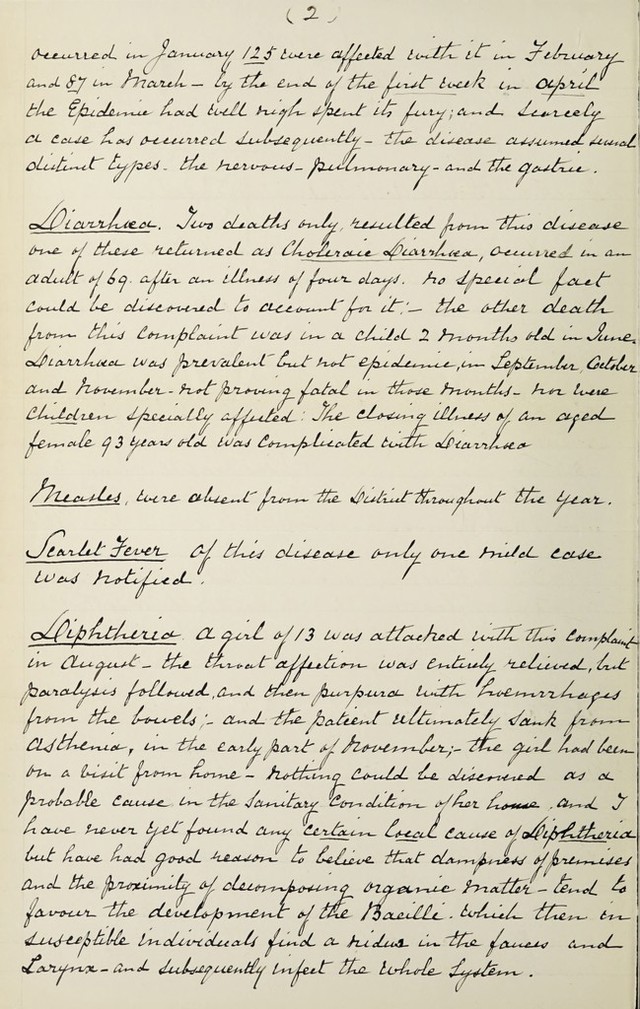 (2)
occurred in January 125 were affected with it in February
and 87 in March - by the end of the first week in april
the Epidemic had well nigh spent its fury; and scarcely
a case has occurred subsequently - the disease assumed several
distinct types - the nervous - pulmonary - and the gastric.
Diarrhœa. Two deaths only, resulted from this disease
one of these returned as Choleraic Diarrhœa, occurred in an
adult of 69. after an illness of four days. no special fact
could be discovered to account for it; - the other death
from this complaint was in a child 2 months old in June.
Diarrhœa was prevalent but not epidemic, in September, October
and November - not proving fatal in those months - nor were
children specially affected: The closing illness of an aged
female 93 years old was complicated with Diarrhœa
Measles, were absent from the District throughout the year.
Scarlet Fever of this disease only one mild case
was notified.
Diphtheria a girl of 13 was attacked with this complaint
in august - the throat affection was entirely relieved, but
paralysis followed, and then purpura with hœmrrhages
from the bowels; - and the patient ultimately sank from
asthenia, in the early part of November; - the girl had been
on a visit from home - nothing could be discovered as a
probable cause in the sanitary condition of her house, and I
have never yet found any certain local cause of Diphtheria
but have had good reason to believe that dampness of premises
and the proximity of decomposing organic matter - tend to
favour the development of the Bacilli. which then in
susceptible individuals find a nidus in the fauces and
Larynx - and subsequently infect the whole system.